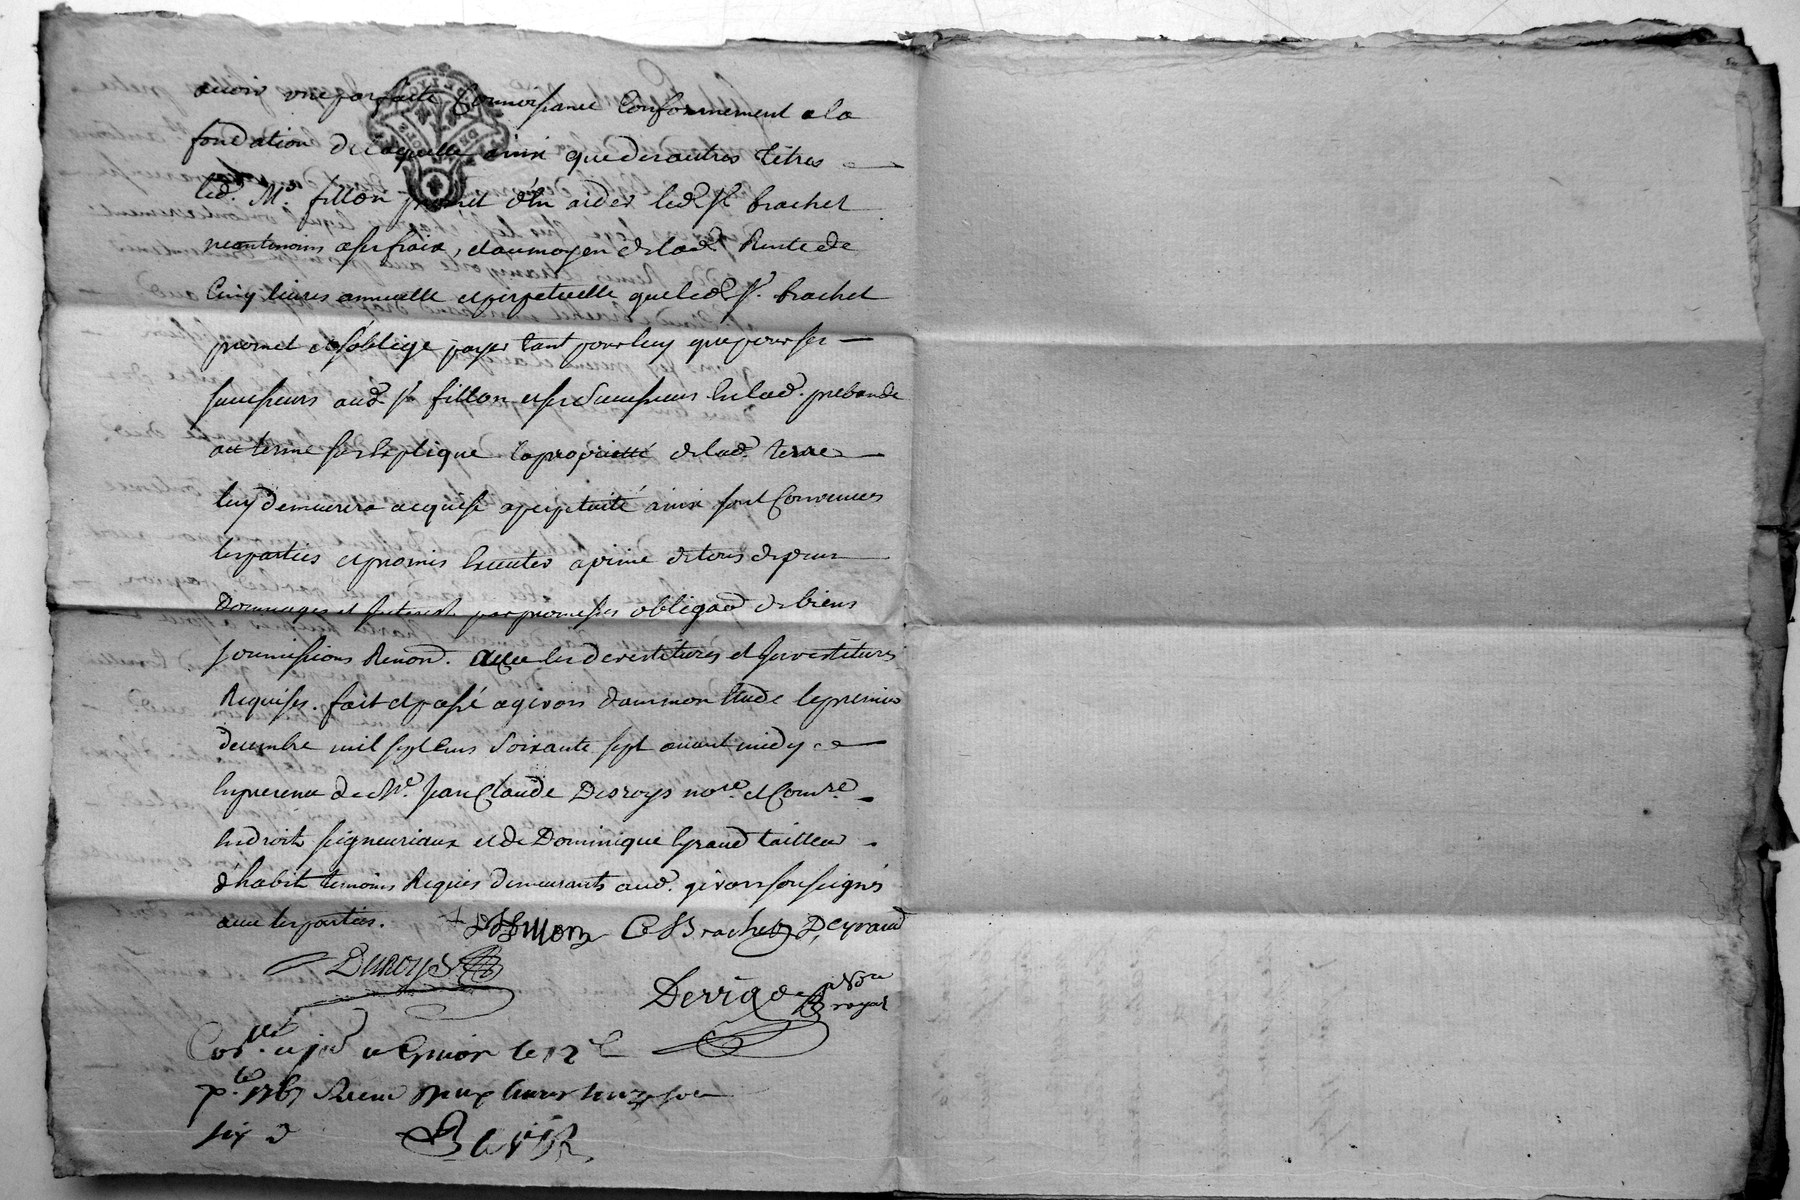 avoir une parfaite Connoissance Conformement a la
fondation de laquelle ainsi que des autres titres
led. Mr. fillon promet d'en aider led. Sr. brachet
neantmoins a ses fraix, et au moyen de lad. Rente de
Cinq livres annuelle et perpetuelle que led. Sr. brachet
promet et s'oblige payer tant pour luy que pour ses
successeurs aud. Sr fillon et ses Successeurs En lad. prebande
au terme sus Explique la proprietté de lad. terre
luy demeurera acquise a perpetuité ainsi sont Convenues
les parties et promis Executer a peine de tous depens
Dommages et Interest par promesses obligaon de biens
soumissions Renon. avec les devestitures et Investitures
Requises. fait et passé a givors dans mon Etude le premier
decembre mil sept Cens Soixante sept avant midy
En presence de Me. Jean Claude Desroys nore. et Commre.
En droits seigneuriaux et de Dominique Eyraud tailleur
d'habits temoins Requis demeurants aud. givors soussignés
avec les parties.
fillon C Brachet D, Eyraud
Duroys
Dervieu nore royal
Conllé. et jné a Givors le 12 e
Xbre 1767 Receu livres sous
six d